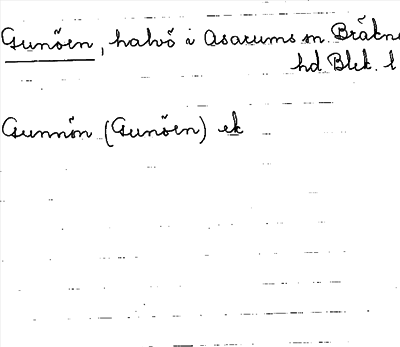 Gunöen, halvö i Asarums sn. Bräkne
hd Blek. l
Gunnön (Gunöen) ek